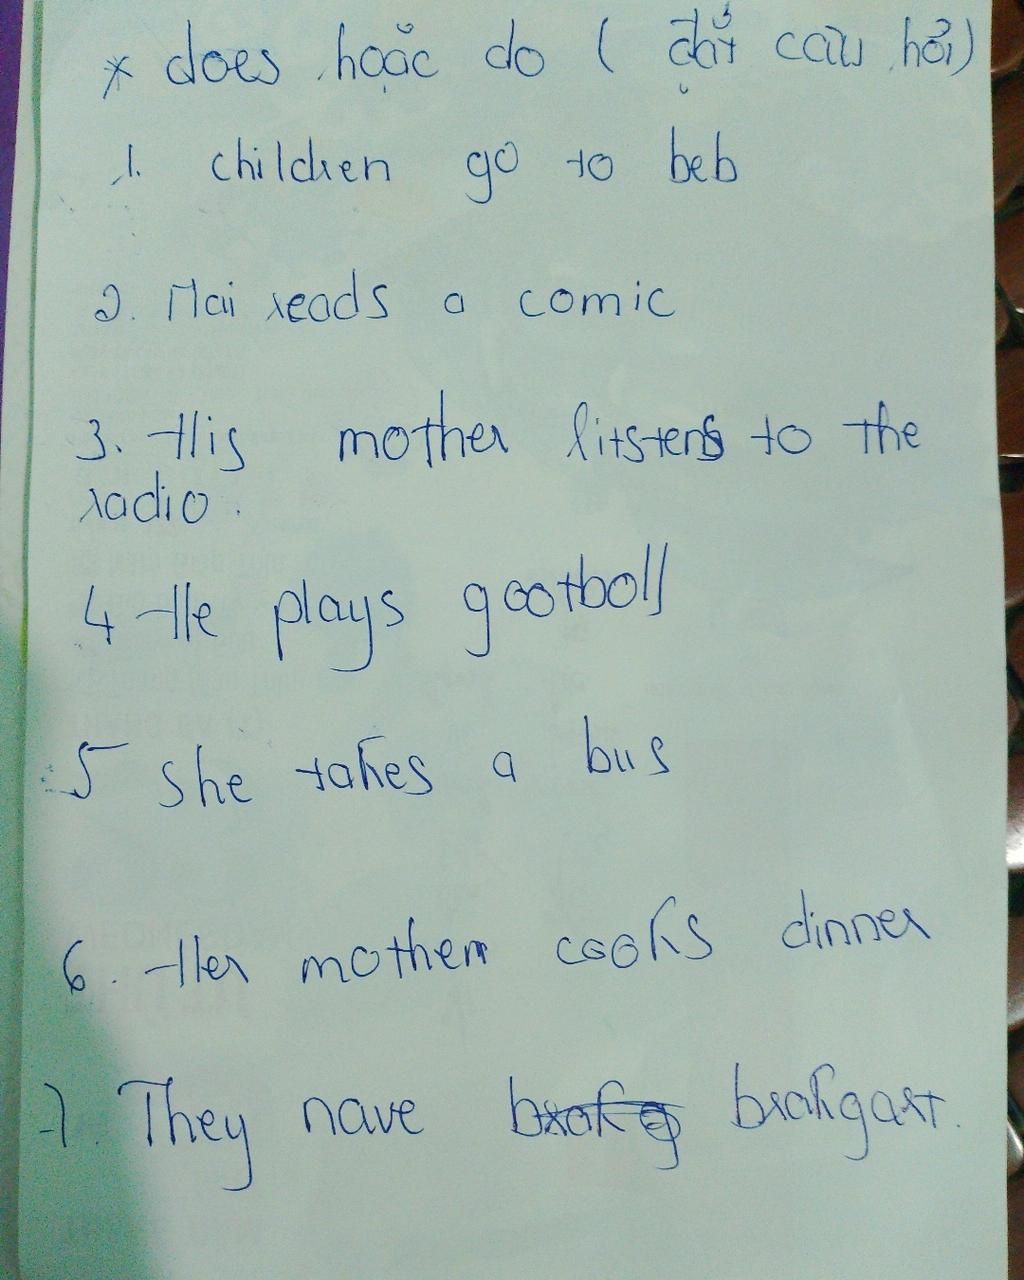 * does hoặc do ( đặt câu hỏi)
1. children go to beb
2. Mai reads a comic
3. His mother litstens to the
radio.
4 He plays gootball
5 she takes a bus
6. Her mother cooks dinner
7. They nave brakgast.